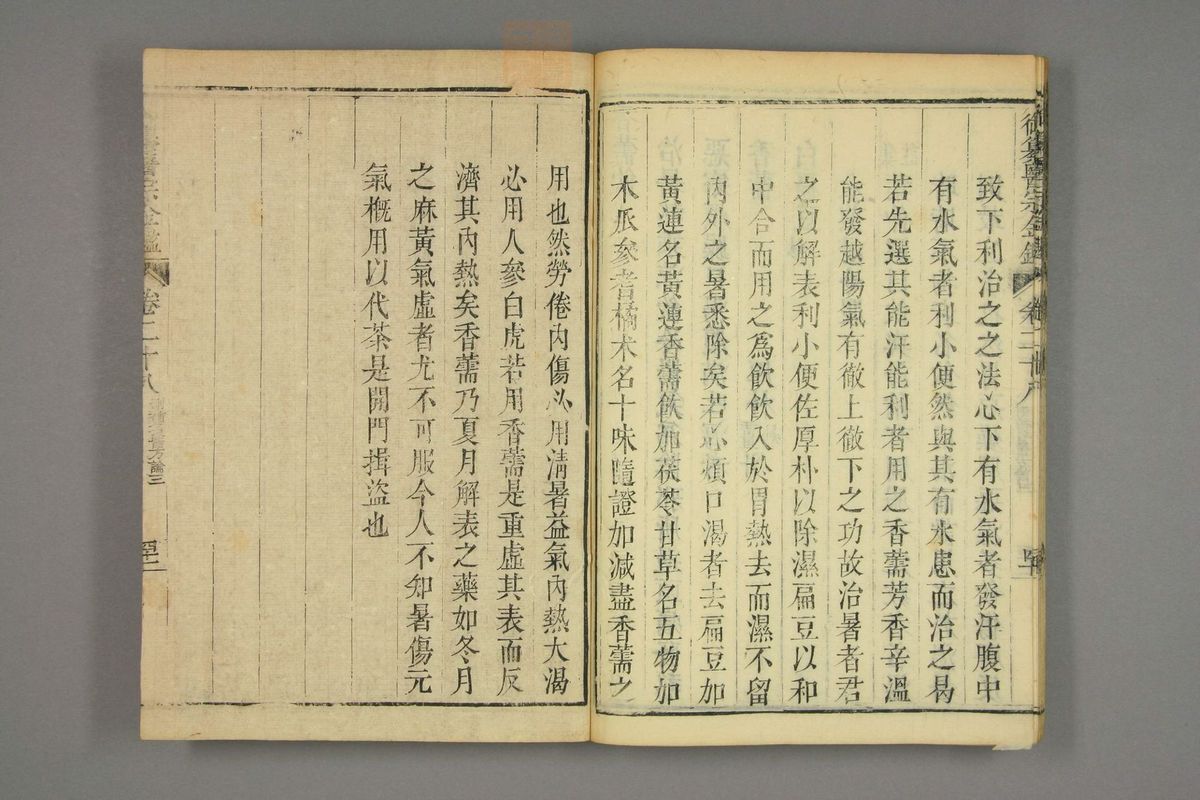 御纂醫宗金鑑
致下利治之之法心下有水氣者發汗腹中
有水氣者利小便然與其有水患而治之曷
若先選其能汗能利者用之香薷芳香辛溫
能發越陽氣有徹上徹下之功故治暑者君
之以解表利小便佐厚朴以除濕扁豆以和
中合而用之爲飲飲入於胃熱去而濕不留
內外之暑悉除矣若心煩口渴者去扁豆加
黃連名黃連香薷飲加茯苓甘草名五物加
木瓜參耆橘朮名十味隨證加減盡香薷之
用也然勞倦內傷必用清暑益氣內熱大渴
必用人參白虎若用香薷是重虛其表而反
濟其內熱矣香薷乃夏月解表之藥如冬月
之麻黃氣虛者尤不可服今人不知暑傷元
氣槪用以代茶是開門揖盜也
卷二十八